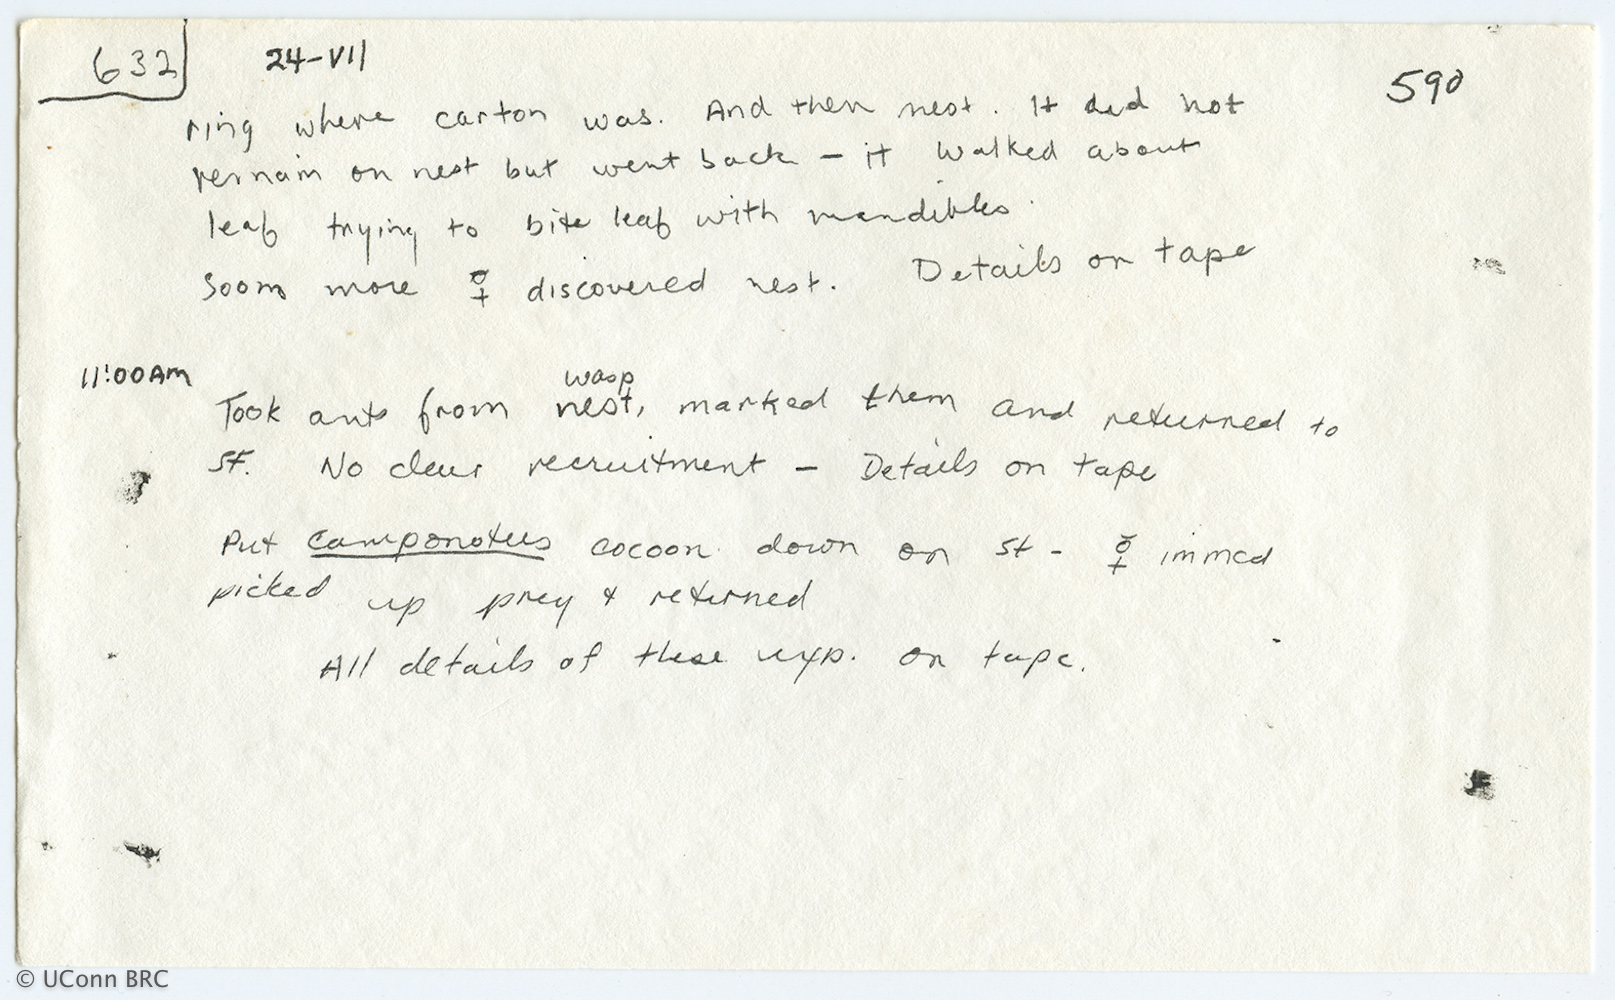 632 24-VII 590
ring where carton was. And then nest. It did not
remain on nest but went back — it walked about
leaf trying to bite leaf with mandibles.
Soon more ☿ discovered nest. Details on tape
11:00AM
wasp
Took ants from nest, marked them and returned to
st. No clear recruitment — Details on tape
Put Camponotus cocoon down on st - ☿ immed
picked up prey & returned
All details of these exp. on tape.
© UConn BRC